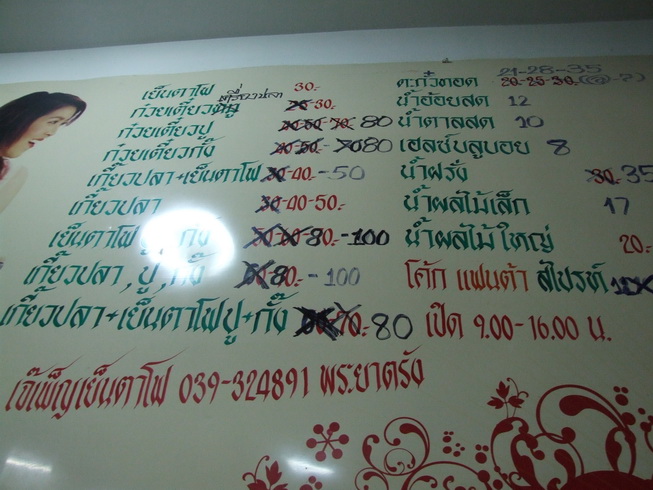 เย็นตาโฟ 30.-
ก๋วยเตี๋ยว 30.-
ก๋วยเตี๋ยวปู 80
ก๋วยเตี๋ยวกั้ง 80
เกี๊ยวปลา+เย็นตาโฟ 40.-50
เกี๊ยวปลา 40-50.-
เย็นตาโฟ ปู, กั้ง 80.-100
เกี๊ยวปลา, ปู, กั้ง 80.-100
เกี๊ยวปลา+เย็นตาโฟปู+กั้ง 80
21-28-35
ตะกั๋วทอด 20-25-30.-
น้ำอ้อยสด 12
น้ำตาลสด 10
เฮลซ์บลูบอย 8
น้ำฝรั่ง 30.- 35
น้ำผลไม้เล็ก 17
น้ำผลไม้ใหญ่ 20.-
โค้ก แฟนต้า สไปรท์
เปิด 9.00-16.00 น.
เจ๊เพ็ญเย็นตาโฟ 039-324891 พระยาตรัง